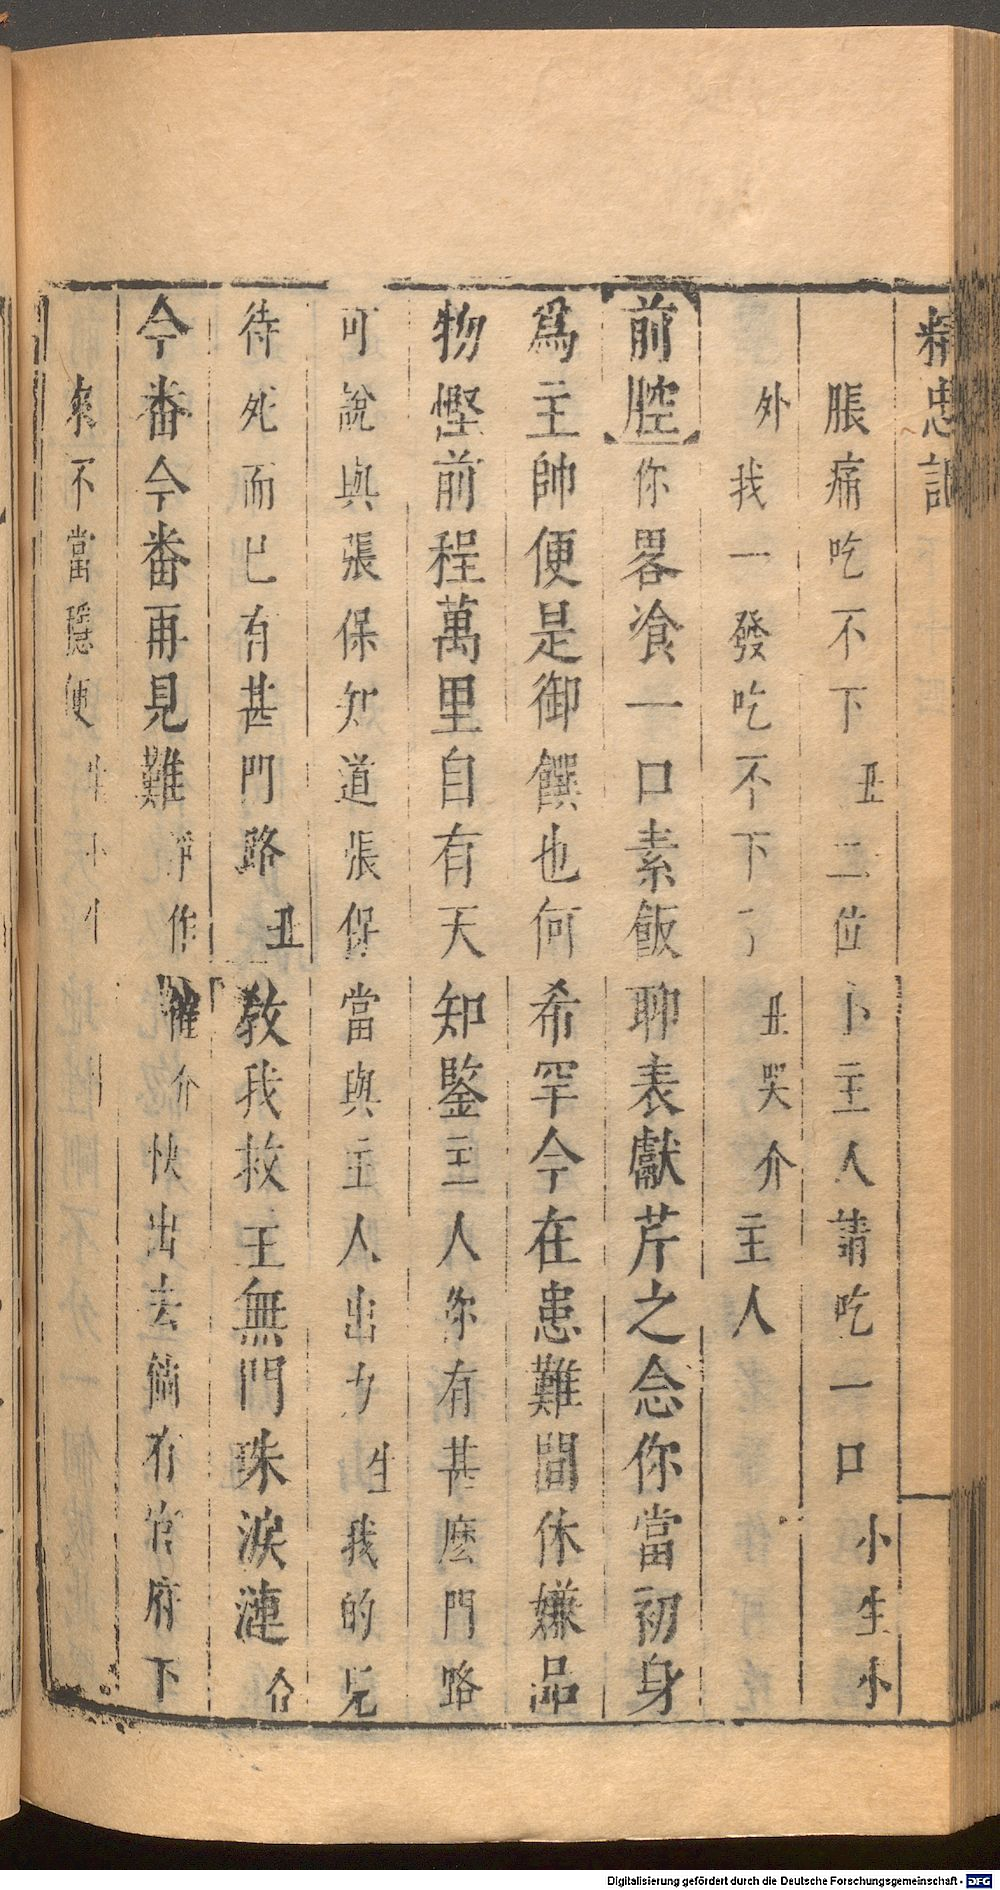 精忠記
脹痛吃不下丑二位卜主人請吃一口小生小
外我一發吃不下了丑哭介主人
前腔你畧飡一口素飯聊表獻芹之念你當初身
爲主帥便是御饌也何希罕今在患難間休嫌品
物慳前程萬里自有天知鑒主人你有甚麽門路
可說與張保知道張保當與主人出力生我的兒
待死而已有甚門路丑教我救主無門珠淚漣合
今番今番再見難淨作催介快出去倘有官府下
來不當隱便生小生
Digitalisierung gefördert durch die Deutsche Forschungsgemeinschaft - DFG